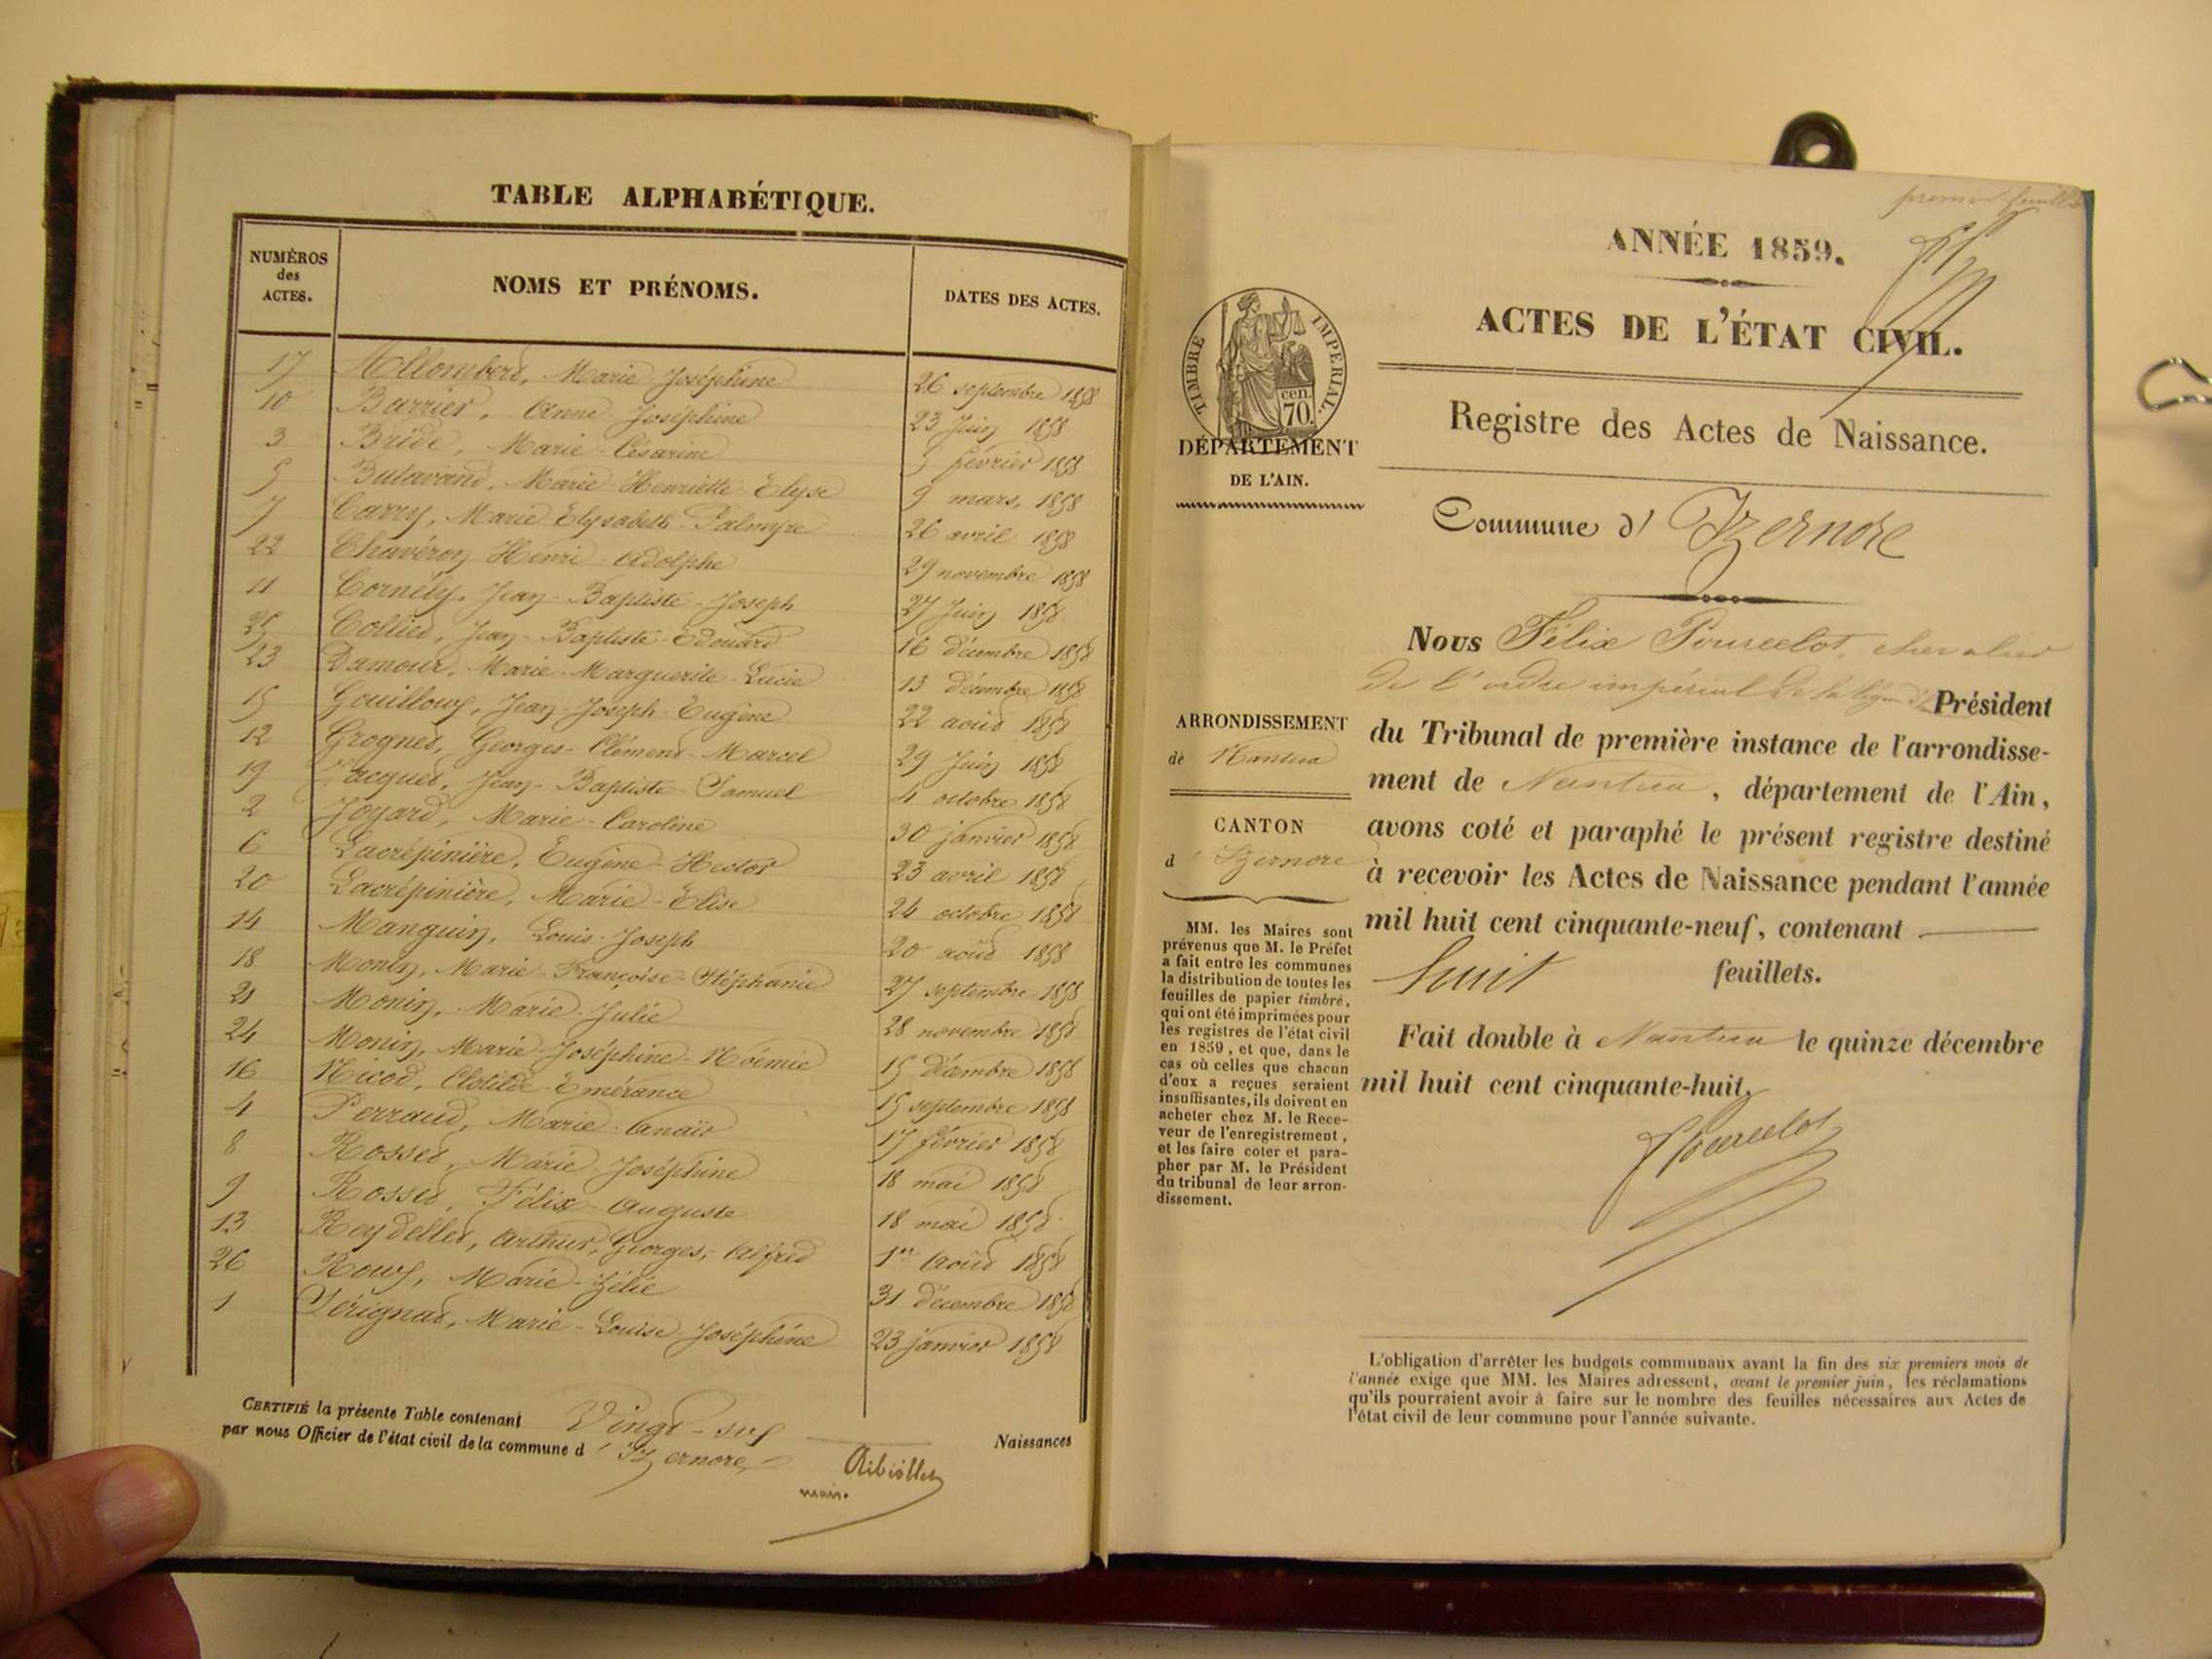 TABLE ALPHABÉTIQUE.
NUMÉROS des ACTES. NOMS ET PRÉNOMS. DATES DES ACTES.
17 Allombert, Marie-Joséphine 26 septembre 1858
10 Barrier, Anne-Joséphine 23 Juin 1858
3 Bride, Marie-Césarine 5 février 1858
5 Butavand, Marie-Henriette-Elyse 9 mars, 1858
7 Carry, Marie Elysabeth-Palmyre 26 avril 1858
22 Chavéron Henri-Adolphe 29 novembre 1858
11 Cornély, Jean-Baptiste-Joseph 27 Juin 1858
25 Collet, Jean-Baptiste-Edouard 16 décembre 1858
23 Damour, Marie-Marguerite-Lucie 13 décembre 1858
15 Gouilloux, Jean-Joseph-Eugène 22 août 1858
12 Grognet, Georges-Clément-Marcel 29 Juin 1858
19 Jacquet, Jean-Baptiste-Samuel 4 octobre 1858
2 Joyard, Marie-Caroline 30 janvier 1858
6 Lacrépinière, Eugène-Hector 23 avril 1858
20 Lacrépinière, Marie-Elise 24 octobre 1858
14 Manguin, Louis-Joseph 20 août 1858
18 Monin, Marie-Françoise-Stéphanie 27 septembre 1858
21 Monin, Marie-Julie 28 novembre 1858
24 Monin, Marie-Joséphine-Noémie 15 décembre 1858
16 Nicod, Clotilde-Emérance 15 septembre 1858
4 Perraud, Marie-Anaïs 17 février 1858
8 Rosset, Marie-Joséphine 18 mai 1858
9 Rosset, Félix-Auguste 18 mai 1858
13 Reydellet, Arthur, Georges, Alfred 1er Août 1858
26 Roux, Marie-Zélie 31 décembre 1858
1 Sérignat, Marie-Louise-Joséphine 23 janvier 1858
CERTIFIÉ la présente Table contenant Vingt-six Naissances
par nous Officier de l'état civil de la commune d'Izernore
maire
premier feuillet
ANNÉE 1859.
ACTES DE L'ÉTAT CIVIL.
TIMBRE IMPÉRIAL.
cen. 70.
DÉPARTEMENT
DE L'AIN.
Registre des Actes de Naissance.
Commune d'Izernore
Nous Félix Pourcelot, chevalier
de l'ordre impérial de la Légion d' Président
du Tribunal de première instance de l'arrondisse-
ment de Nantua, département de l'Ain,
avons coté et paraphé le présent registre destiné
à recevoir les Actes de Naissance pendant l'année
mil huit cent cinquante-neuf, contenant
huit feuillets.
Fait double à Nantua le quinze décembre
mil huit cent cinquante-huit.
Pourcelot
ARRONDISSEMENT
de Nantua
CANTON
d'Izernore
MM. les Maires sont
prévenus que M. le Préfet
a fait entre les communes
la distribution de toutes les
feuilles de papier timbré,
qui ont été imprimées pour
les registres de l'état civil
en 1859, et que, dans le
cas où celles que chacun
d'eux a reçues seraient
insuffisantes, ils doivent en
acheter chez M. le Rece-
veur de l'enregistrement,
et les faire coter et para-
pher par M. le Président
du tribunal de leur arron-
dissement.
L'obligation d'arrêter les budgets communaux avant la fin des six premiers mois de
l'année exige que MM. les Maires adressent, avant le premier juin, les réclamations
qu'ils pourraient avoir à faire sur le nombre des feuilles nécessaires aux Actes de
l'état civil de leur commune pour l'année suivante.